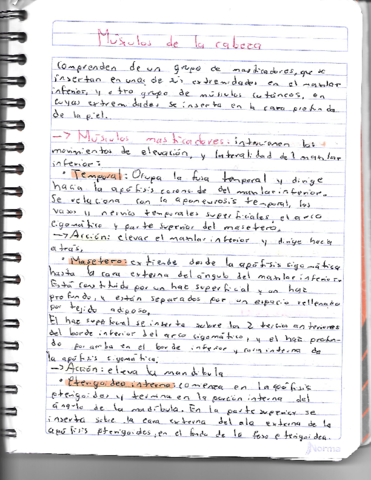 Músculos de la cabeza
Comprenden de un grupo de masticadores, que se
insertan en una de sus extremidades en el maxilar
inferior, y otro grupo de músculos cutáneos, en
cuyas extremidades se inserta en la cara profunda
de la piel.
→ Músculos masticadores: intervienen los
movimientos de elevación, y lateralidad del maxilar
inferior:
• Temporal: Ocupa la fosa temporal y dirige
hacia la apófisis coronoide del maxilar inferior.
Se relaciona con la aponeurosis temporal, los
vasos y nervios temporales superficiales, el arco
cigomático y parte superior del masetero.
→ Acción: elevar el maxilar inferior y dirige hacia
atrás.
• Masetero: extiende desde la apófisis cigomática
hasta la cara externa del ángulo del maxilar inferior.
Está constituido por un haz superficial y un haz
profundo, y están separados por un espacio rellenado
por tejido adiposo.
El haz superficial se inserta sobre los 2 tercios anteriores
del borde inferior del arco cigomático, y el haz profundo
por arriba en el borde inferior y cara interna de
la apófisis cigomática.
→ Acción: eleva la mandibula
Pterigoideo interno: comienza en la apófisis
pterigoides y termina en la porción interna del
ángulo de la mandíbula. En la parte superior se
inserta sobre la cara externa del ala externa de la
apófisis pterigoides, en el fondo de la fosa pterigoidea.
norma